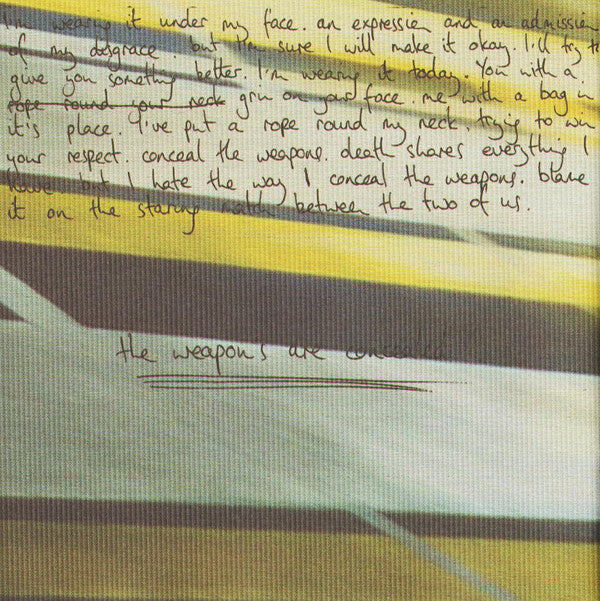 I'm wearing it under my face. an expression and an admission
of my disgrace. but I'm sure I will make it okay. I'll try to
give you something better. I'm wearing it today. You with a
rope round your neck grin on your face. me with a bag in
it's place. I've put a rope round my neck, trying to win
your respect. conceal the weapons. death shares everything I
have but I hate the way I conceal the weapons. blame
it on the staring match between the two of us.
the weapons are concealed